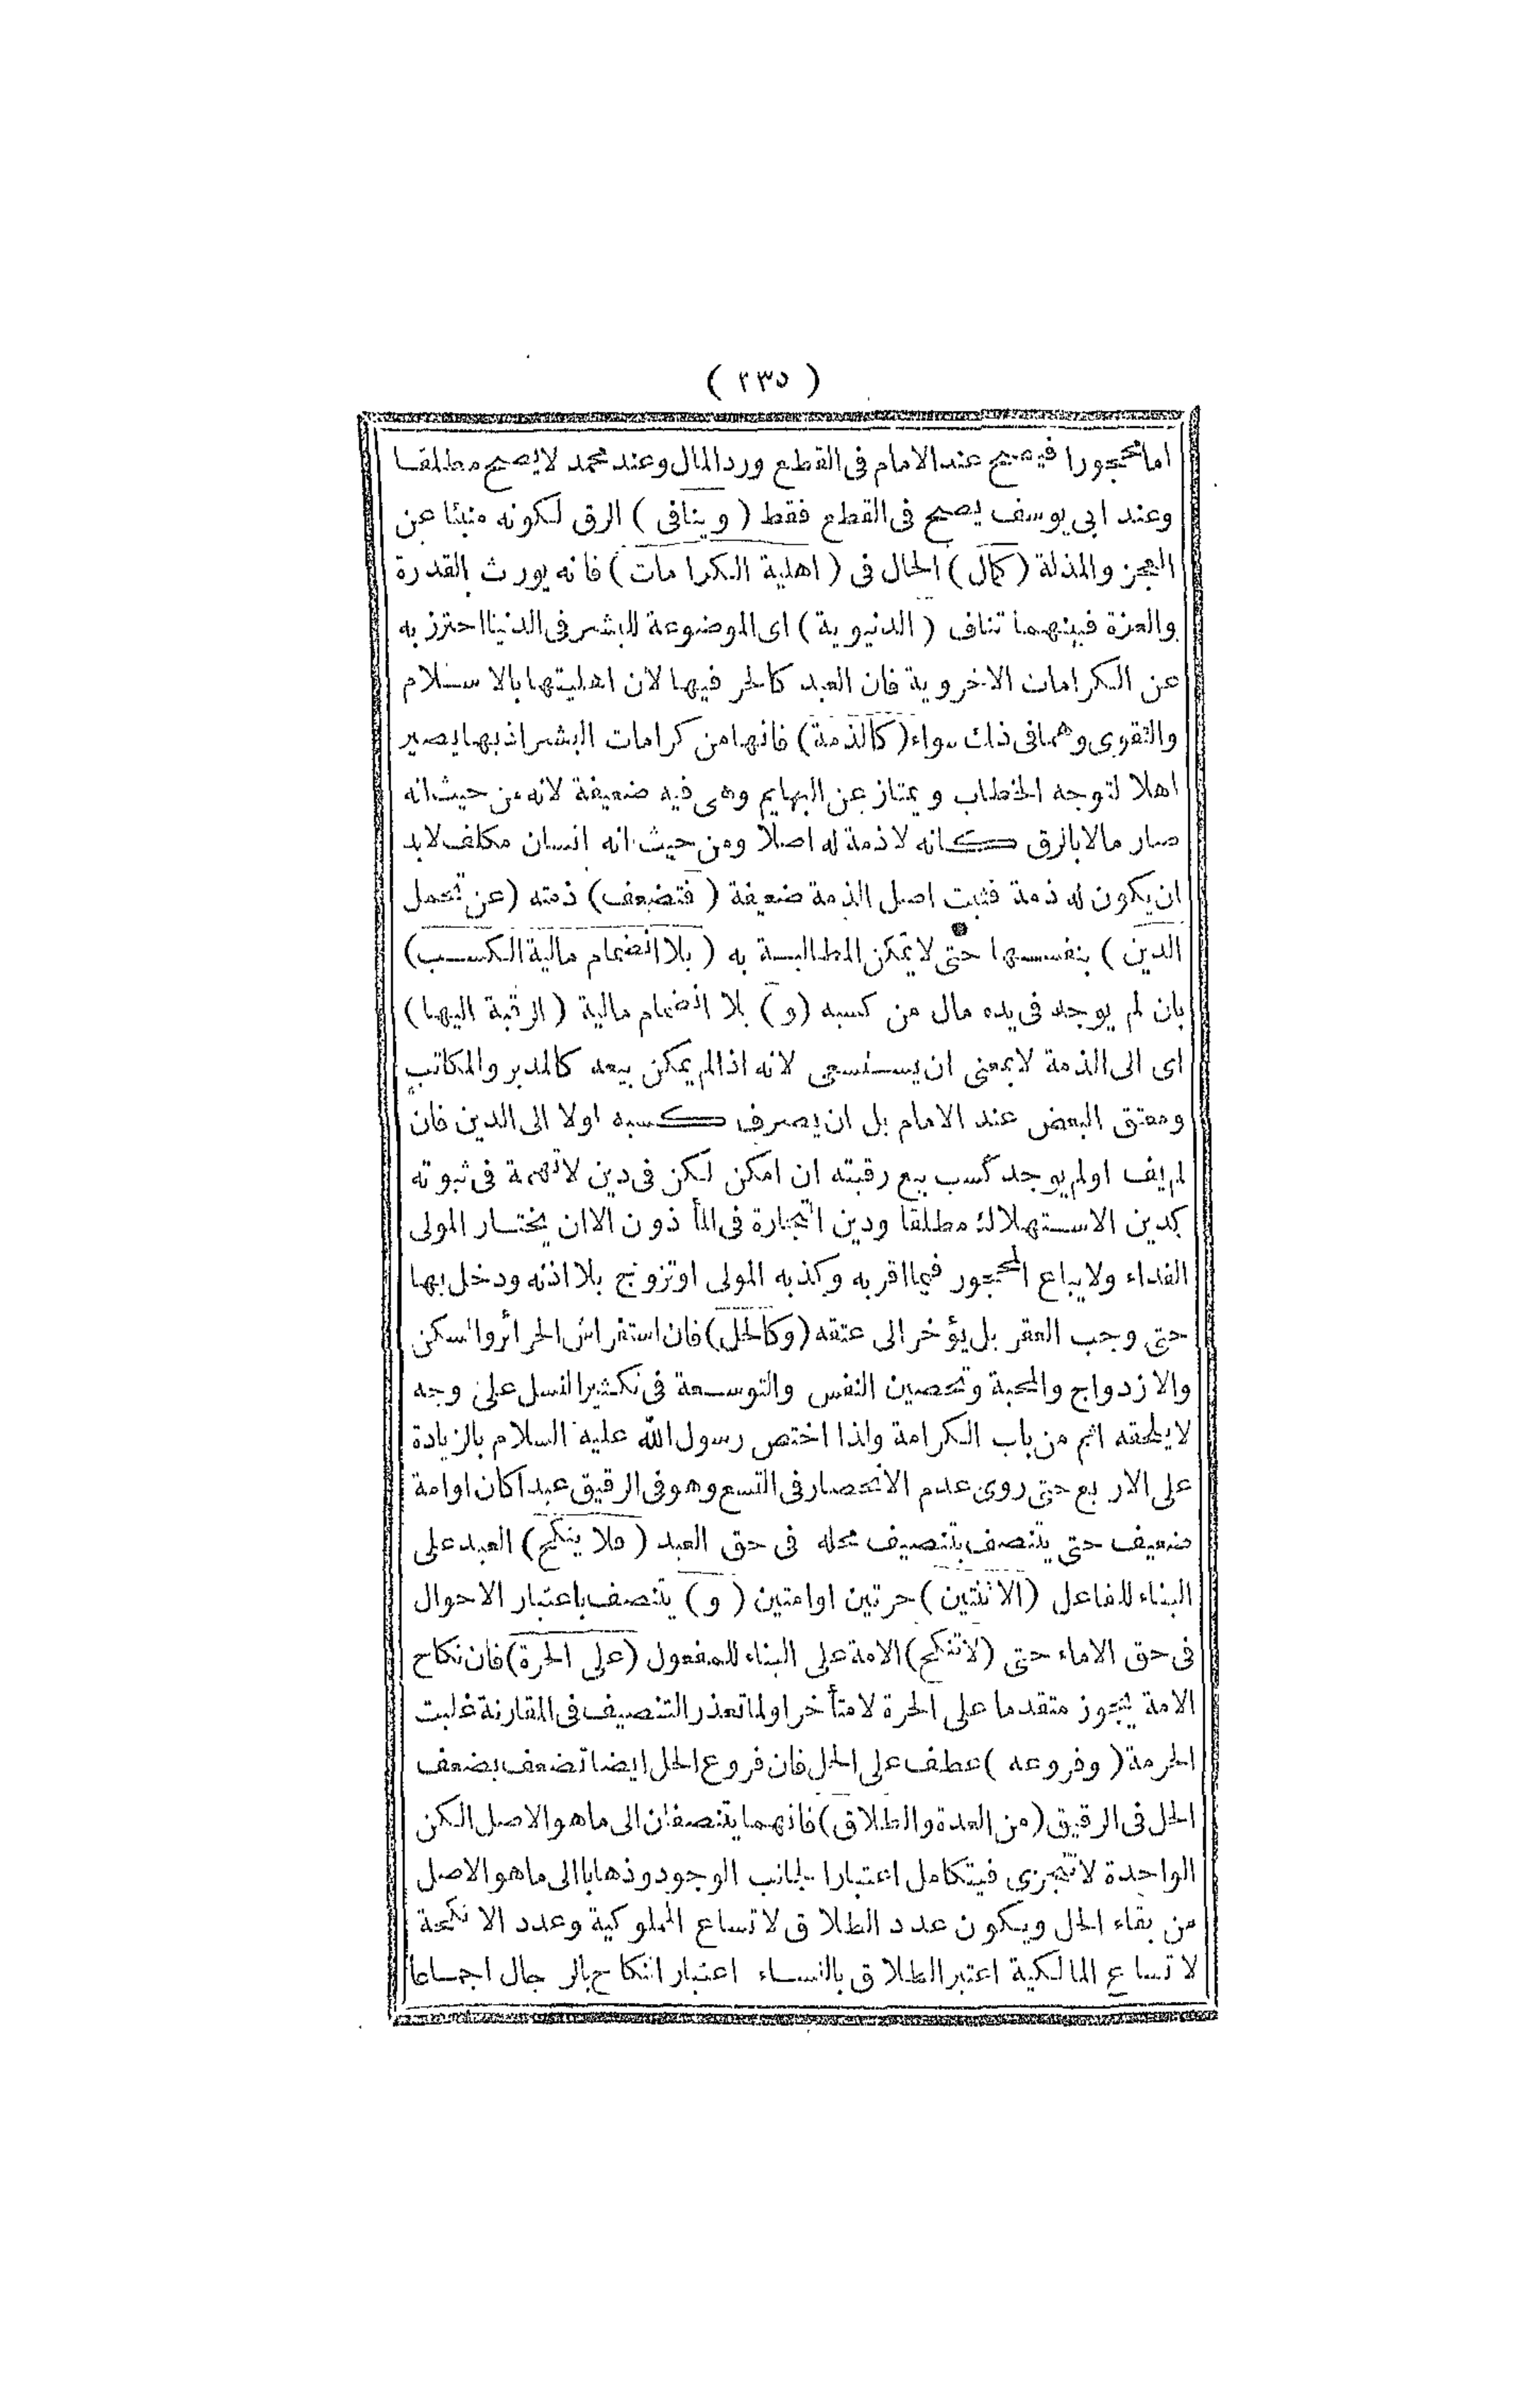 ( ٢٣٥ )
اما محجورا فيصح عند الامام فى القطع ورد المال وعند محمد لا يصح مطلقا
وعند ابى يوسف يصح فى القطع فقط ( وينافى ) الرق لكونه منبئا عن
العجز والمذلة ( كمال ) الحال فى ( اهلية الكرامات ) فانه يورث القدرة
والعزة فبينهما تناف ( الدنيوية ) اى الموضوعة للبشر فى الدنيا احترز به
عن الكرامات الاخروية فان العبد كالحر فيها لان اهليتها بالاسلام
والتقوى وهما فى ذلك سواء ( كالذمة ) فانها من كرامات البشر اذ بها يصير
اهلا لتوجه الخطاب ويمتاز عن البهايم وهى فيه ضعيفة لانه من حيث انه
صار مالا بالرق كانه لا ذمة له اصلا ومن حيث انه انسان مكلف لابد
ان يكون له ذمة فثبت اصل الذمة ضعيفة ( فتضعف ) ذمته ( عن تحمل
الدين ) بنفسها حتى لا يمكن المطالبة به ( بلا انضمام مالية الكسب )
بان لم يوجد فى يده مال من كسبه ( و ) بلا انضمام مالية ( الرقبة اليها )
اى الى الذمة لا بمعنى ان يستسعى لانه اذا لم يمكن بيعه كالمدبر والمكاتب
ومعتق البعض عند الامام بل ان يصرف كسبه اولا الى الدين فان
لم يف او لم يوجد كسب بيع رقبته ان امكن لكن فى دين لا تهمة فى ثبوته
كدين الاستهلاك مطلقا ودين التجارة فى المأذون الا ان يختار المولى
الفداء ولا يباع المحجور فيما اقر به وكذبه المولى او تزوج بلا اذنه ودخل بها
حتى وجب العقر بل يؤخر الى عتقه ( وكالحل ) فان استفراش الحرائر والسكن
والازدواج والمحبة وتحصين النفس والتوسعة فى تكثير النسل على وجه
لا يلحقه اثم من باب الكرامة ولذا اختص رسول الله عليه السلام بالزيادة
على الاربع حتى روى عدم الانحصار فى التسع وهو فى الرقيق عبدا كان او امة
ضعيف حتى يتنصف بتنصيف محله فى حق العبد ( فلا ينكح ) العبد على
البناء للفاعل ( الا ثنتين ) حرتين او امتين ( و ) يتنصف باعتبار الاحوال
فى حق الاماء حتى ( لا تنكح ) الامة على البناء للمفعول ( على الحرة ) فان نكاح
الامة يجوز متقدما على الحرة لا متأخرا ولما تعذر التنصيف فى المقارنة غلبت
الحرمة ( وفروعه ) عطف على الحل فان فروع الحل ايضا تضعف بضعف
الحل فى الرقيق ( من العدة والطلاق ) فانهما يتنصفان الى ما هو الاصل لكن
الواحدة لا تتجزى فيتكامل اعتبارا لجانب الوجود وذهابا الى ما هو الاصل
من بقاء الحل ويكون عدد الطلاق لاتساع المملوكية وعدد الانكحة
لاتساع المالكية اعتبر الطلاق بالنساء اعتبار النكاح بالرجال اجماعا